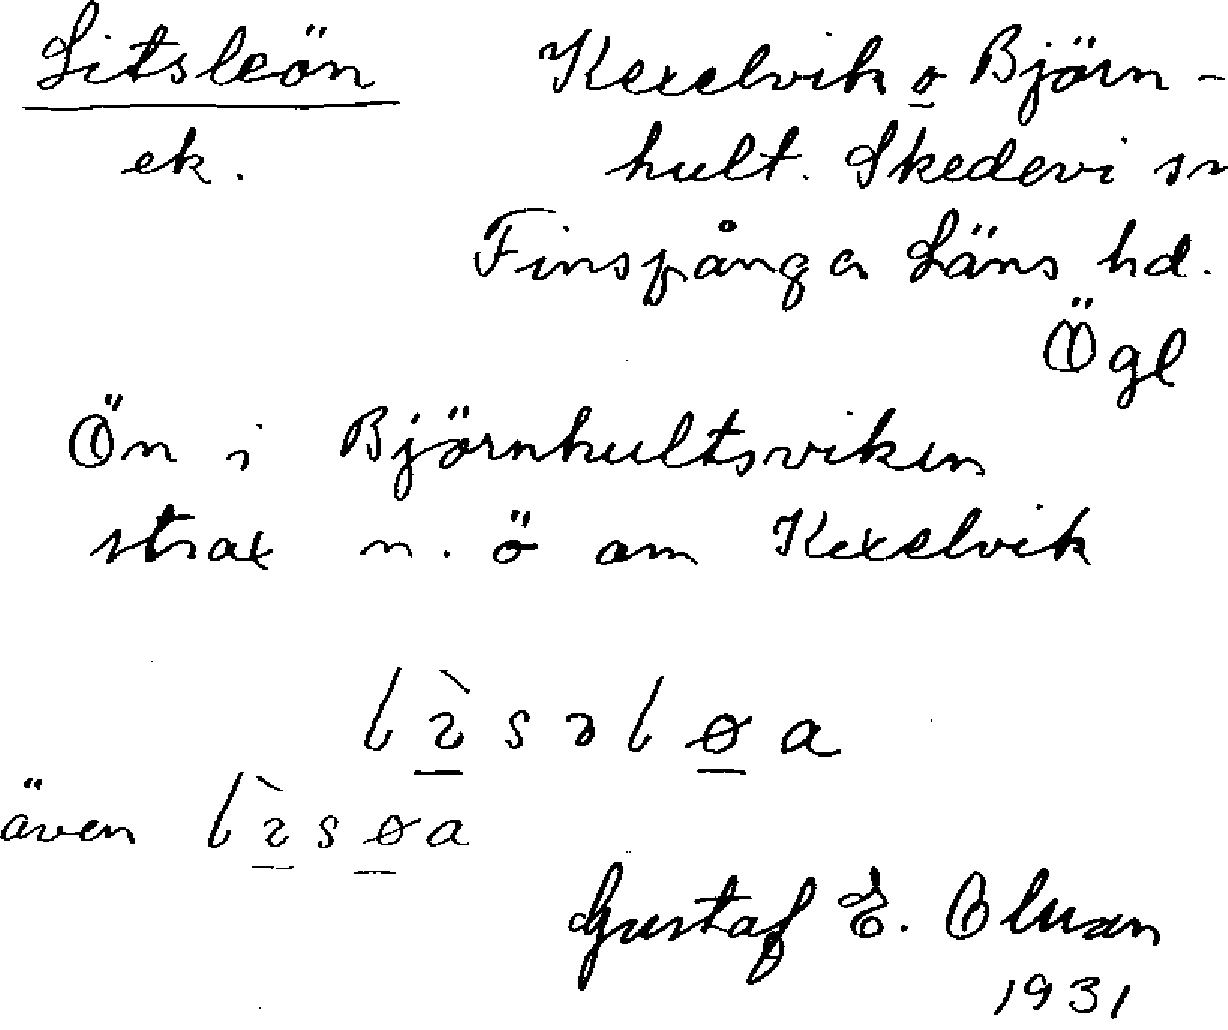 Litsleön Kexelvik o Björn-
ek. hult. Skedevi sn
Finspånga Läns hd.
Ögl
Ön i Björnhultsviken
strax n. ö om Kexelvik
även
Gustaf E. Olsson
1931